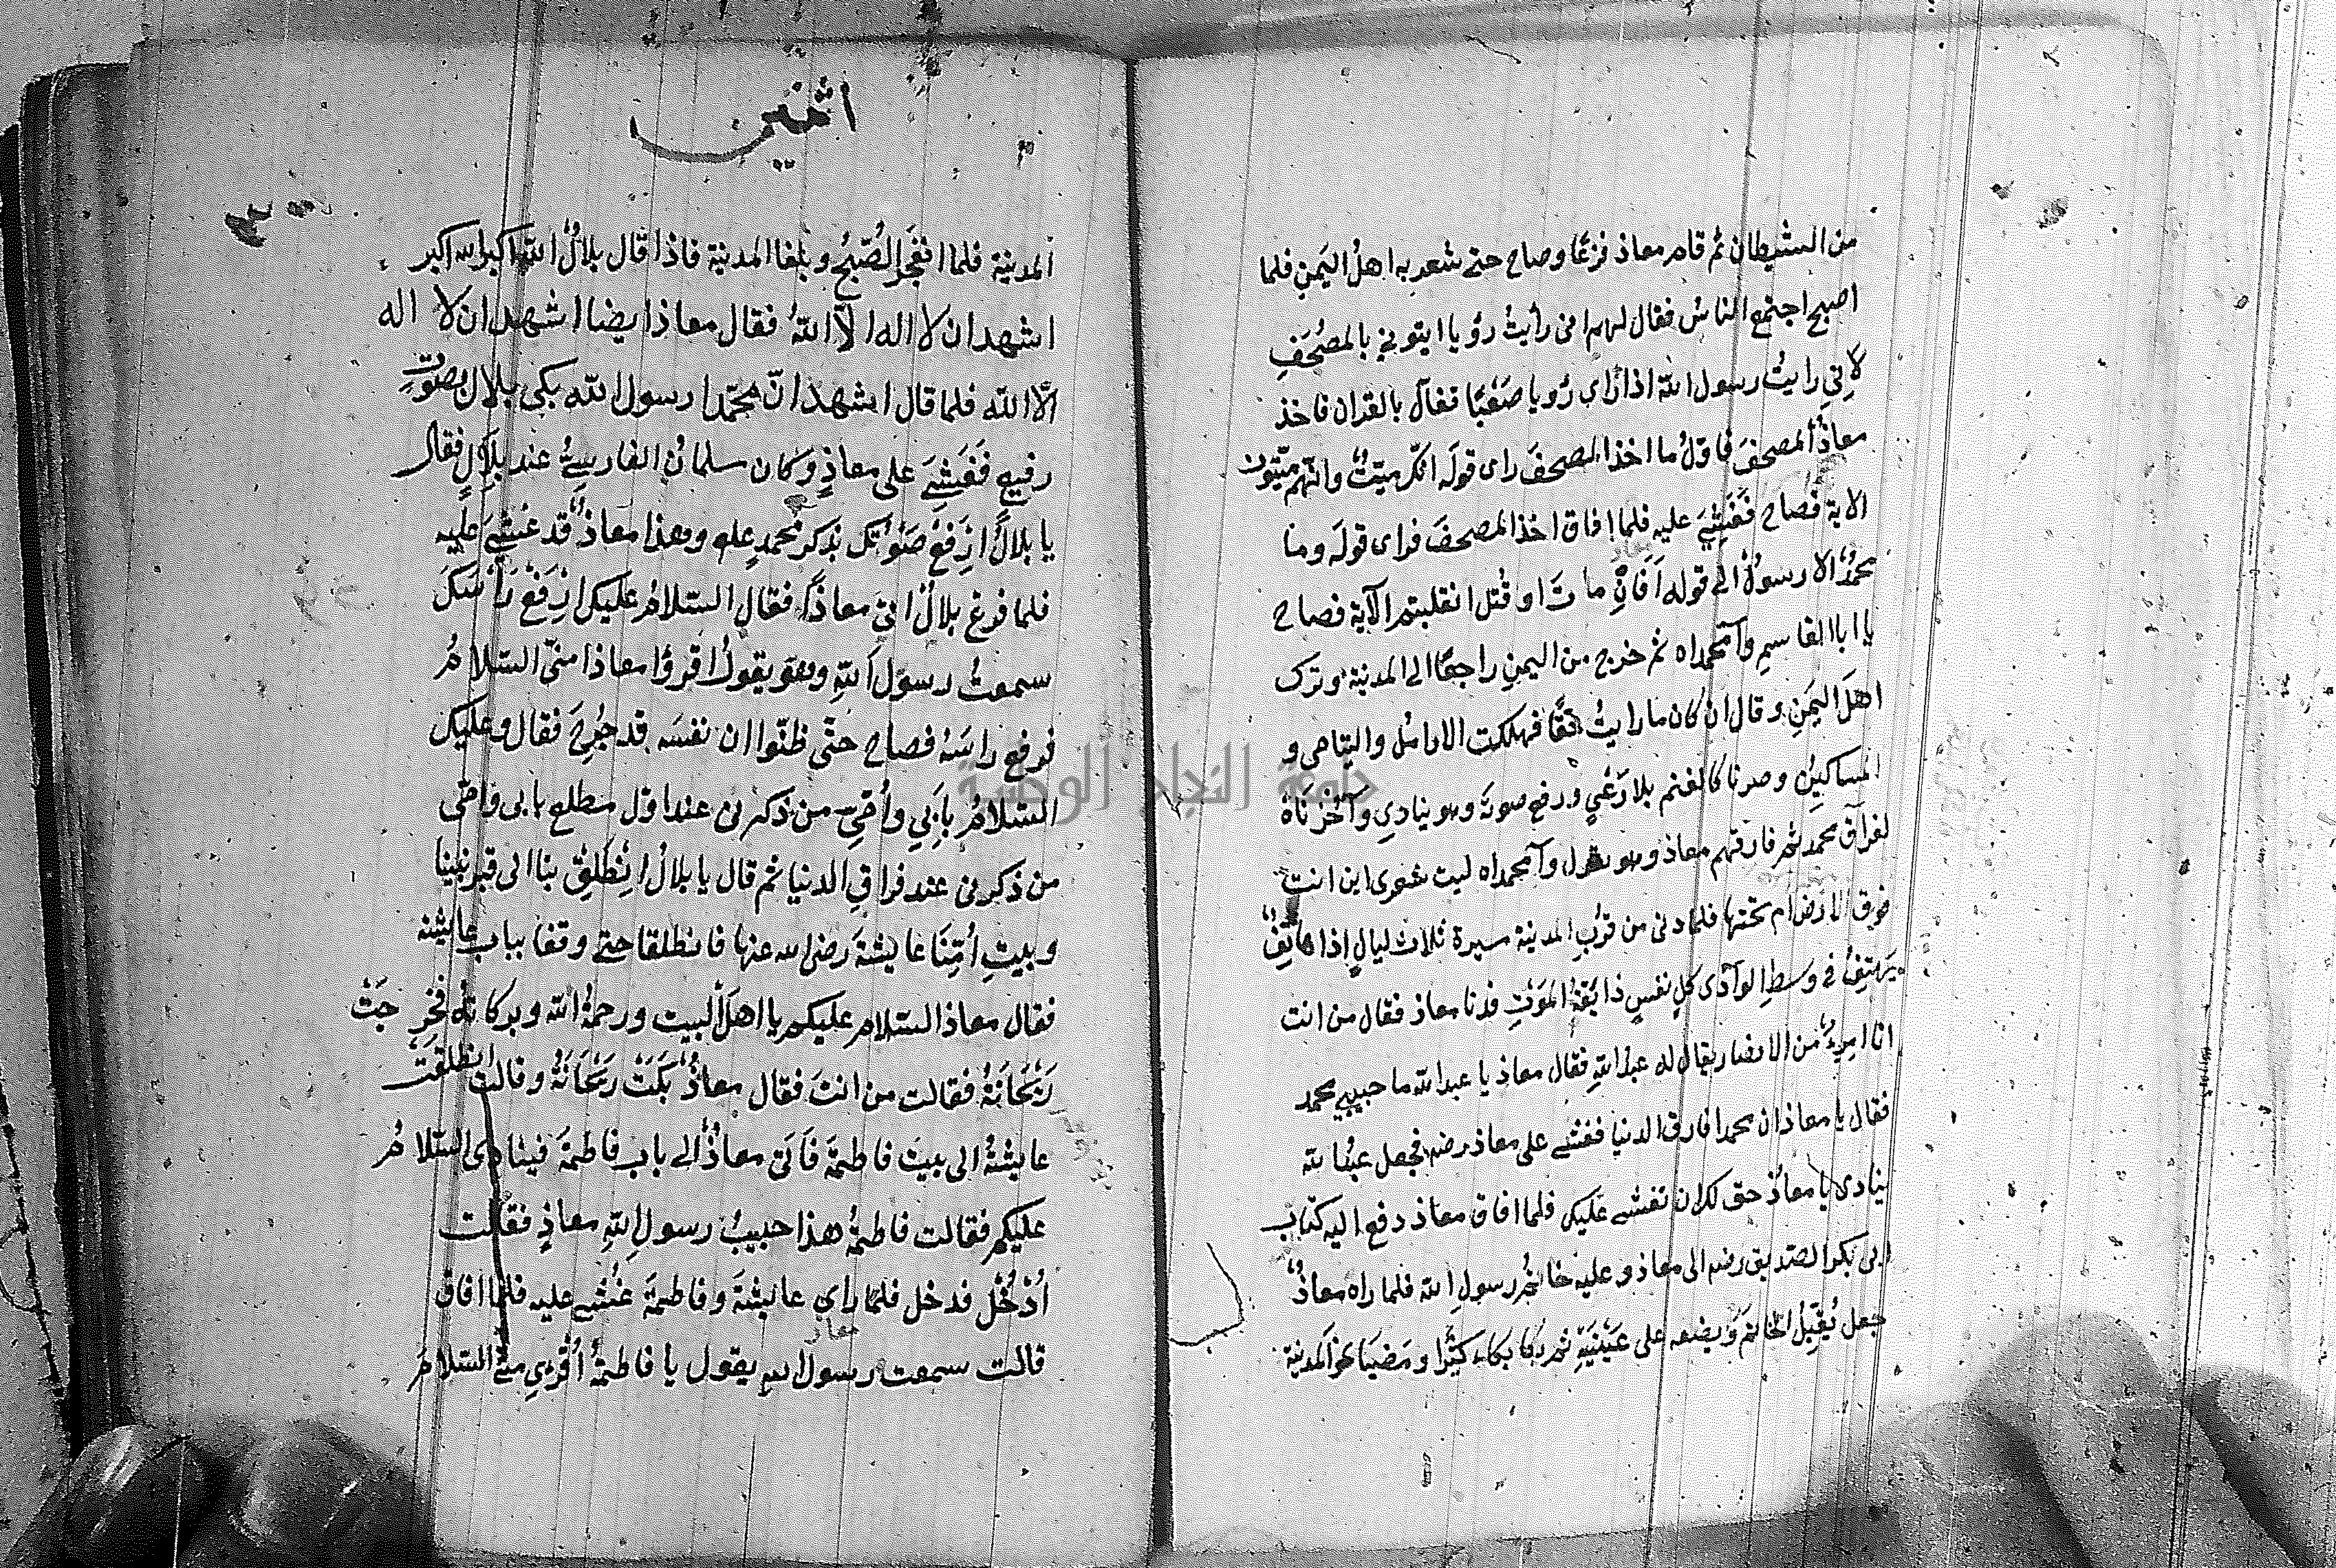 من الشيطان ثم قام معاذ فزعًا وصاح حتى شعر به اهل اليمن فلما
اصبح اجتمع الناس فقال لهم انى رأيت رؤيا ايتوني بالمصحف
لاني رايت رسول الله اذا رأى رؤيا صَعْبًا تفأل بالقران فاخذ
معاذ المصحف فاول ما اخذ المصحف راى قوله انك ميت وانهم ميتون
الاية فصاح فغشي عليه فلما افاق اخذ المصحف فراى قوله وما
محمد الا رسول الى قوله افان مات او قتل انقلبتم الآية فصاح
يا ابا القاسم وآمحمداه ثم خرج من اليمن راجعًا الى المدينة وترك
اهل اليمن وقال ان كان ما رايت حقًا فهلكت الارامل واليتامى و
المساكين وصرنا كالغنم بلا رَعْيٍ ورفع صوته وهو ينادي وآحُزْنَاهُ
لفراق محمد ثم فارقهم معاذ وهو يقول وآمحمداه ليت شعرى اين انت
فوق الارض ام تحتها فلما دنى من قرب المدينة مسيرة ثلاث ليالٍ اذا هاتف
يهتف في وسط الوآدى كل نفس ذائقة الموت فدنا معاذ فقال من انت
انا امرئ من الانصار يقال له عبد الله فقال معاذ يا عبد الله ما حبيبي محمد
فقال يا معاذ ان محمدا فارق الدنيا فغشى على معاذ رضه فجعل عبد الله
ينادى يا معاذ حق لك ان تغشى عليك فلما افاق معاذ دفع اليه كتاب
ابى بكر الصديق رضه الى معاذ وعليه خاتم رسول الله فلما راه معاذ
جعل يُقبل الخاتم ويضعه على عينيه ثم بكا بكاء كثيرا ومضيا نحو المدينة
اثنين
المدينة فلما انفجر الصبح وبلغا المدينة فاذا قال بلال الله اكبر الله اكبر
اشهد ان لا اله الا الله فقال معاذ ايضا اشهد ان لا اله
الا الله فلما قال اشهد ان محمدا رسول الله بكى بلال بصوت
رفيع فغشي على معاذ وكان سلمان الفارسي عند بلال فقال
يا بلال ارفع صوتك بذكر محمد علم وهذا معاذ قد غشي عليه
فلما فرغ بلال اتى معاذا فقال السلام عليك ارفع رأسك
سمعت رسول الله وهو يقول اقرؤا معاذا منى السلام
فرفع راسه فصاح حتى ظنوا ان نفسه قد خرج فقال وعليك
السلام بابي وأمي من ذكرنى عند اول مطلع بابى وامى
من ذكرنى عند فراقي الدنيا ثم قال يا بلال انطلق بنا الى قبر نبينا
وبيت أمنا عايشة رضى الله عنها فانطلقا حتى وقفا بباب عايشة
فقال معاذ السلام عليكم يا اهل البيت ورحمة الله وبركاته فخرجت
ريحانة فقالت من انت فقال معاذ بكت ريحانة وقالت انطلقت
عايشة الى بيت فاطمة فأتى معاذ الى باب فاطمة فينادى السلام
عليكم فقالت فاطمة هذا حبيب رسول الله معاذ فقالت
أدخل فدخل فلما راى عايشة وفاطمة غشى عليه فلما افاق
معاذ
قالت سمعت رسول الله يقول يا فاطمة اقرئي منى السلام
جامعة النجاح الوطنية